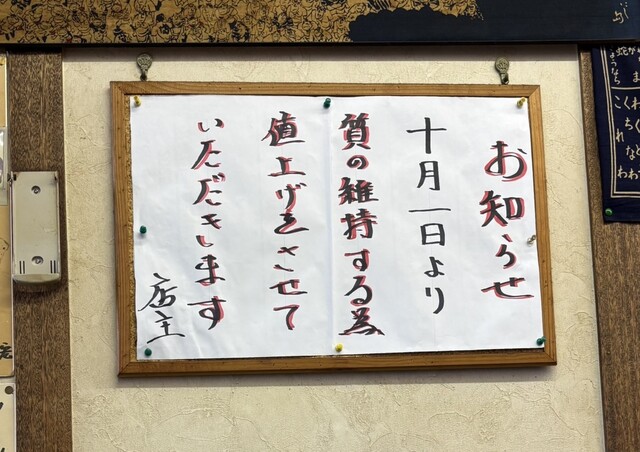 お知らせ
十月一日より
質の維持する為
値上げをさせて
いただきします
店主